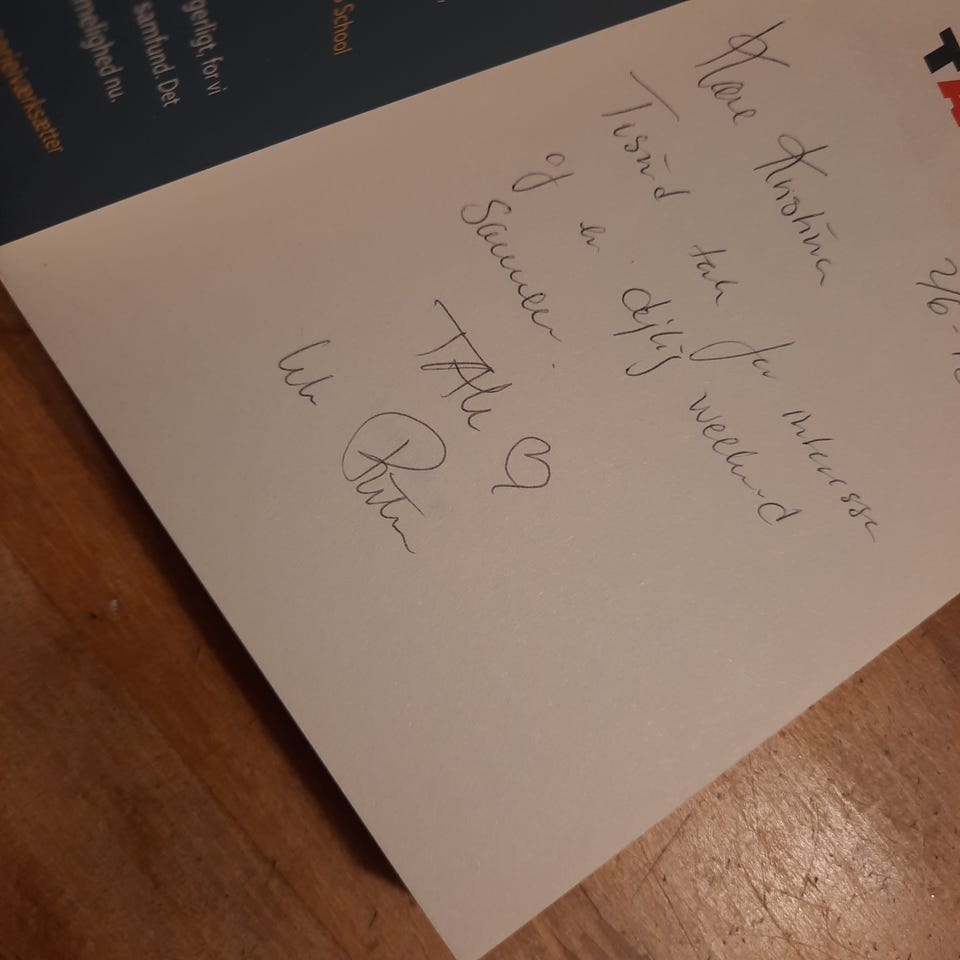 School
gerligt, for vi
samfund. Det
melighed nu.
TA
2/6-
Kære Kristina
Tusind tak for interesse
og en dejlig weekend
sammen.
TAK ♡